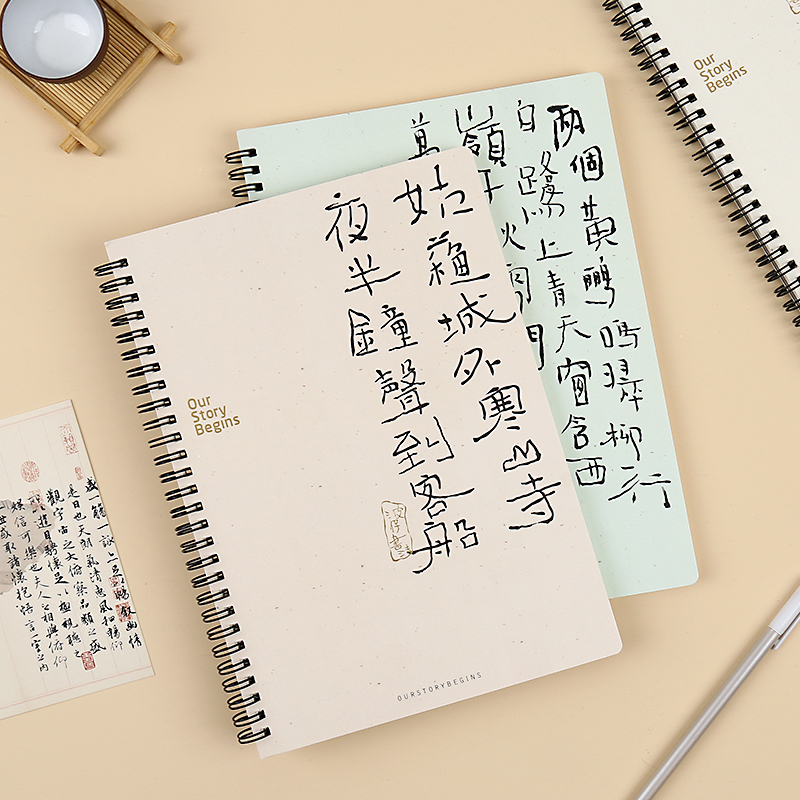 Our
Story
Begins
兩個黃鸝鳴翠柳一行
白鷺上青天窗含西
嶺千秋
萬
姑蘓城外寒山寺
夜半鐘聲到客船
Our
Story
Begins
OURSTORYBEGINS
盛一觴一詠亦足以暢叙幽情
是日也天朗氣清惠風和暢仰
觀宇宙之大俯察品類之盛
遊目騁懷足以極視聽之
娛信可樂也夫人之相與俯仰
世或取諸懷抱悟言一室之內